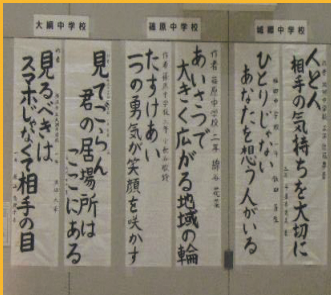 城郷中学校
人と人
相手の気持ちを大切に
ひとりじゃない
あなたを想う人がいる
篠原中学校
あいさつで
大きく広がる地域の輪
たすけあい
一つの勇気が笑顔を咲かす
大綱中学校
見てごらん
君の居場所は ここにある
見るべきは
スマホじゃなく 相手の目